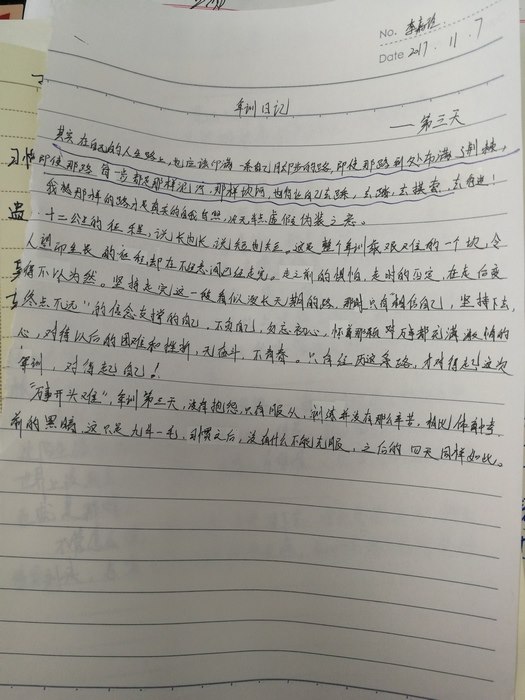 No. 李
Date 2017. 11. 7
军训日记
——第三天
其实在自己的人生路上，也应该印满一条自己脚步的路，即使那路到处布满了荆棘，
即使那路每一步都是那样泥泞，那样坎坷，也得让自己去踩，去踏，去摸索，去前进！
我想那样的路才是真实的自我自然，没有半点虚假伪装之意。
十二公里的征途，说长也长，说短也短。这是整个军训最艰难的一个坎，令
人望而生畏的征程却在不经意间已经走完。走之前的惧怕，走时的坚定，在走后变
得不以为然。坚持走完这一段看似漫长无期的路，那时只有相信自己，坚持下去，
终点不远"的信念支撑的自己，不负自己，勿忘初心，怀着那颗对万事都充满激情的
心，对待以后的困难和挫折，无奋斗，不青春。只有经历这条路，才对得起这次
军训，对得起自己！
"万事开头难"，军训第三天，没有抱怨，只有服从，训练并没有那么辛苦，相比体育中考
前的黑暗，这只是九牛一毛，习惯之后，没有什么不能克服，之后的四天同样如此。
习惯